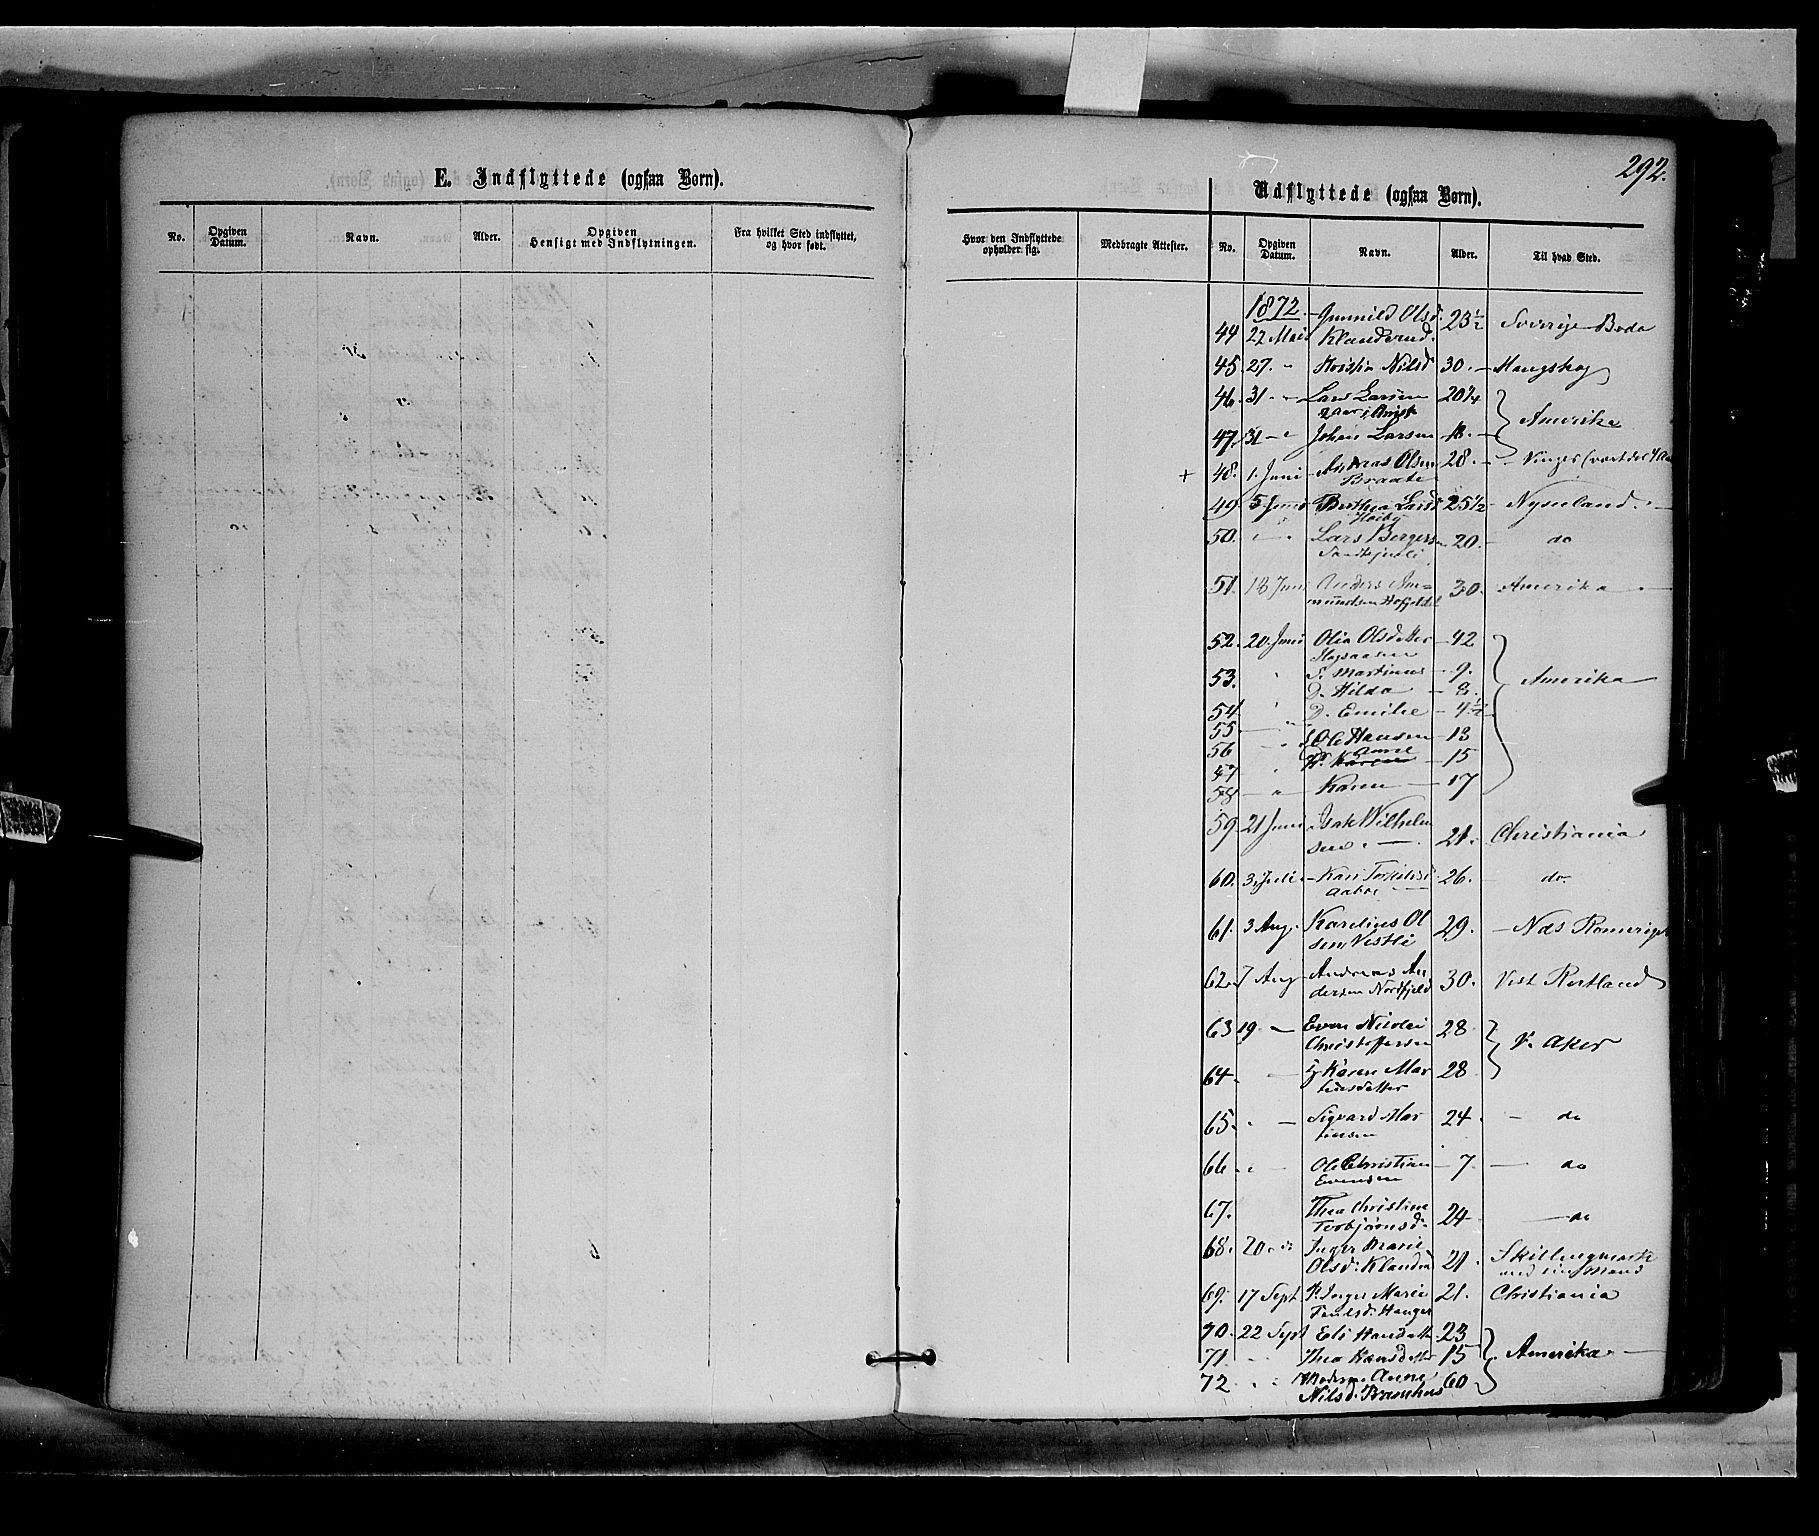 292.
E. Indflyttede (ogsaa Børn).
No. Opgiven Datum. Navn. Alder. Opgiven Hensigt med Indflytningen. Fra hvilket Sted indflyttet, og hvor født.
Hvor den Indflyttede opholder sig. Medbragte Attester.
Udflyttede (ogsaa Børn).
No. Opgiven Datum. Navn. Alder. Til hvad Sted.
1872. Gunnild Olsd. 23½ Sverige Boda
44 22 Mai Klanderud.
45. 27. " Nilsd 30. Mangskog
46. 31 - " Lars Larsen 20¼
Amerika
47. 31 - " Johan Larsen 18.
+ 48. 1. Juni Andreas Olsen 28. - Vinger
Braate
49. 5 Juni Berthea Larsd 25½ Nysuland.
Høiby
50. " Lars Bergersen 20. do
51. 18 Juni Anders Am- 30. Amerika
mundsen
52. 20. Juni Olia Olsdatter 42
53. " S. Martinus - 9. Amerika
D. Hilda - 8.
54 " D. Emilie - 4½
55 "
56 " Ole Hansen 13
57 " Anne 15
58 - " Karen 17
59 21 Juni Isak Wilhelm
sen. 21. Christiania
60. 3. Juli Kari 26. do.
61. 3 Aug. Karelius Ol 29. - Næs Romerige
sen Vestli
62. 7 Aug Andreas An 30. Vest
dersen Nordfjeld
63 19 - Even Nicolai 28
Christoffersen V. Aker
64. - H Karen Mar 28
tinsdatter
65. " - Sigvard Mar 24 - do
tinsen
66 " - Ole Christian - 7. - do
Evensen
67. Thea Christine 24 - do
Torbjørnsd.
68. 20 - " Inger Marie
Olsd: Klanderud 21. Skillingmark
69. 17 Sept P. Inger Marie 21. Christiania
70. 22 Sept Eli Hansdatter 23
71 " Thea Hansdatter 15 Amerika
72 " " Moderen Anne 60
Nilsd. Bramhus